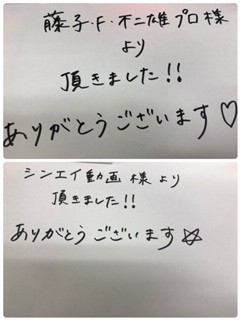 藤子・F・不二雄プロ様
より
頂きました!!
ありがとうございます♡
シンエイ動画 様 より
頂きました!!
ありがとう ございます☆